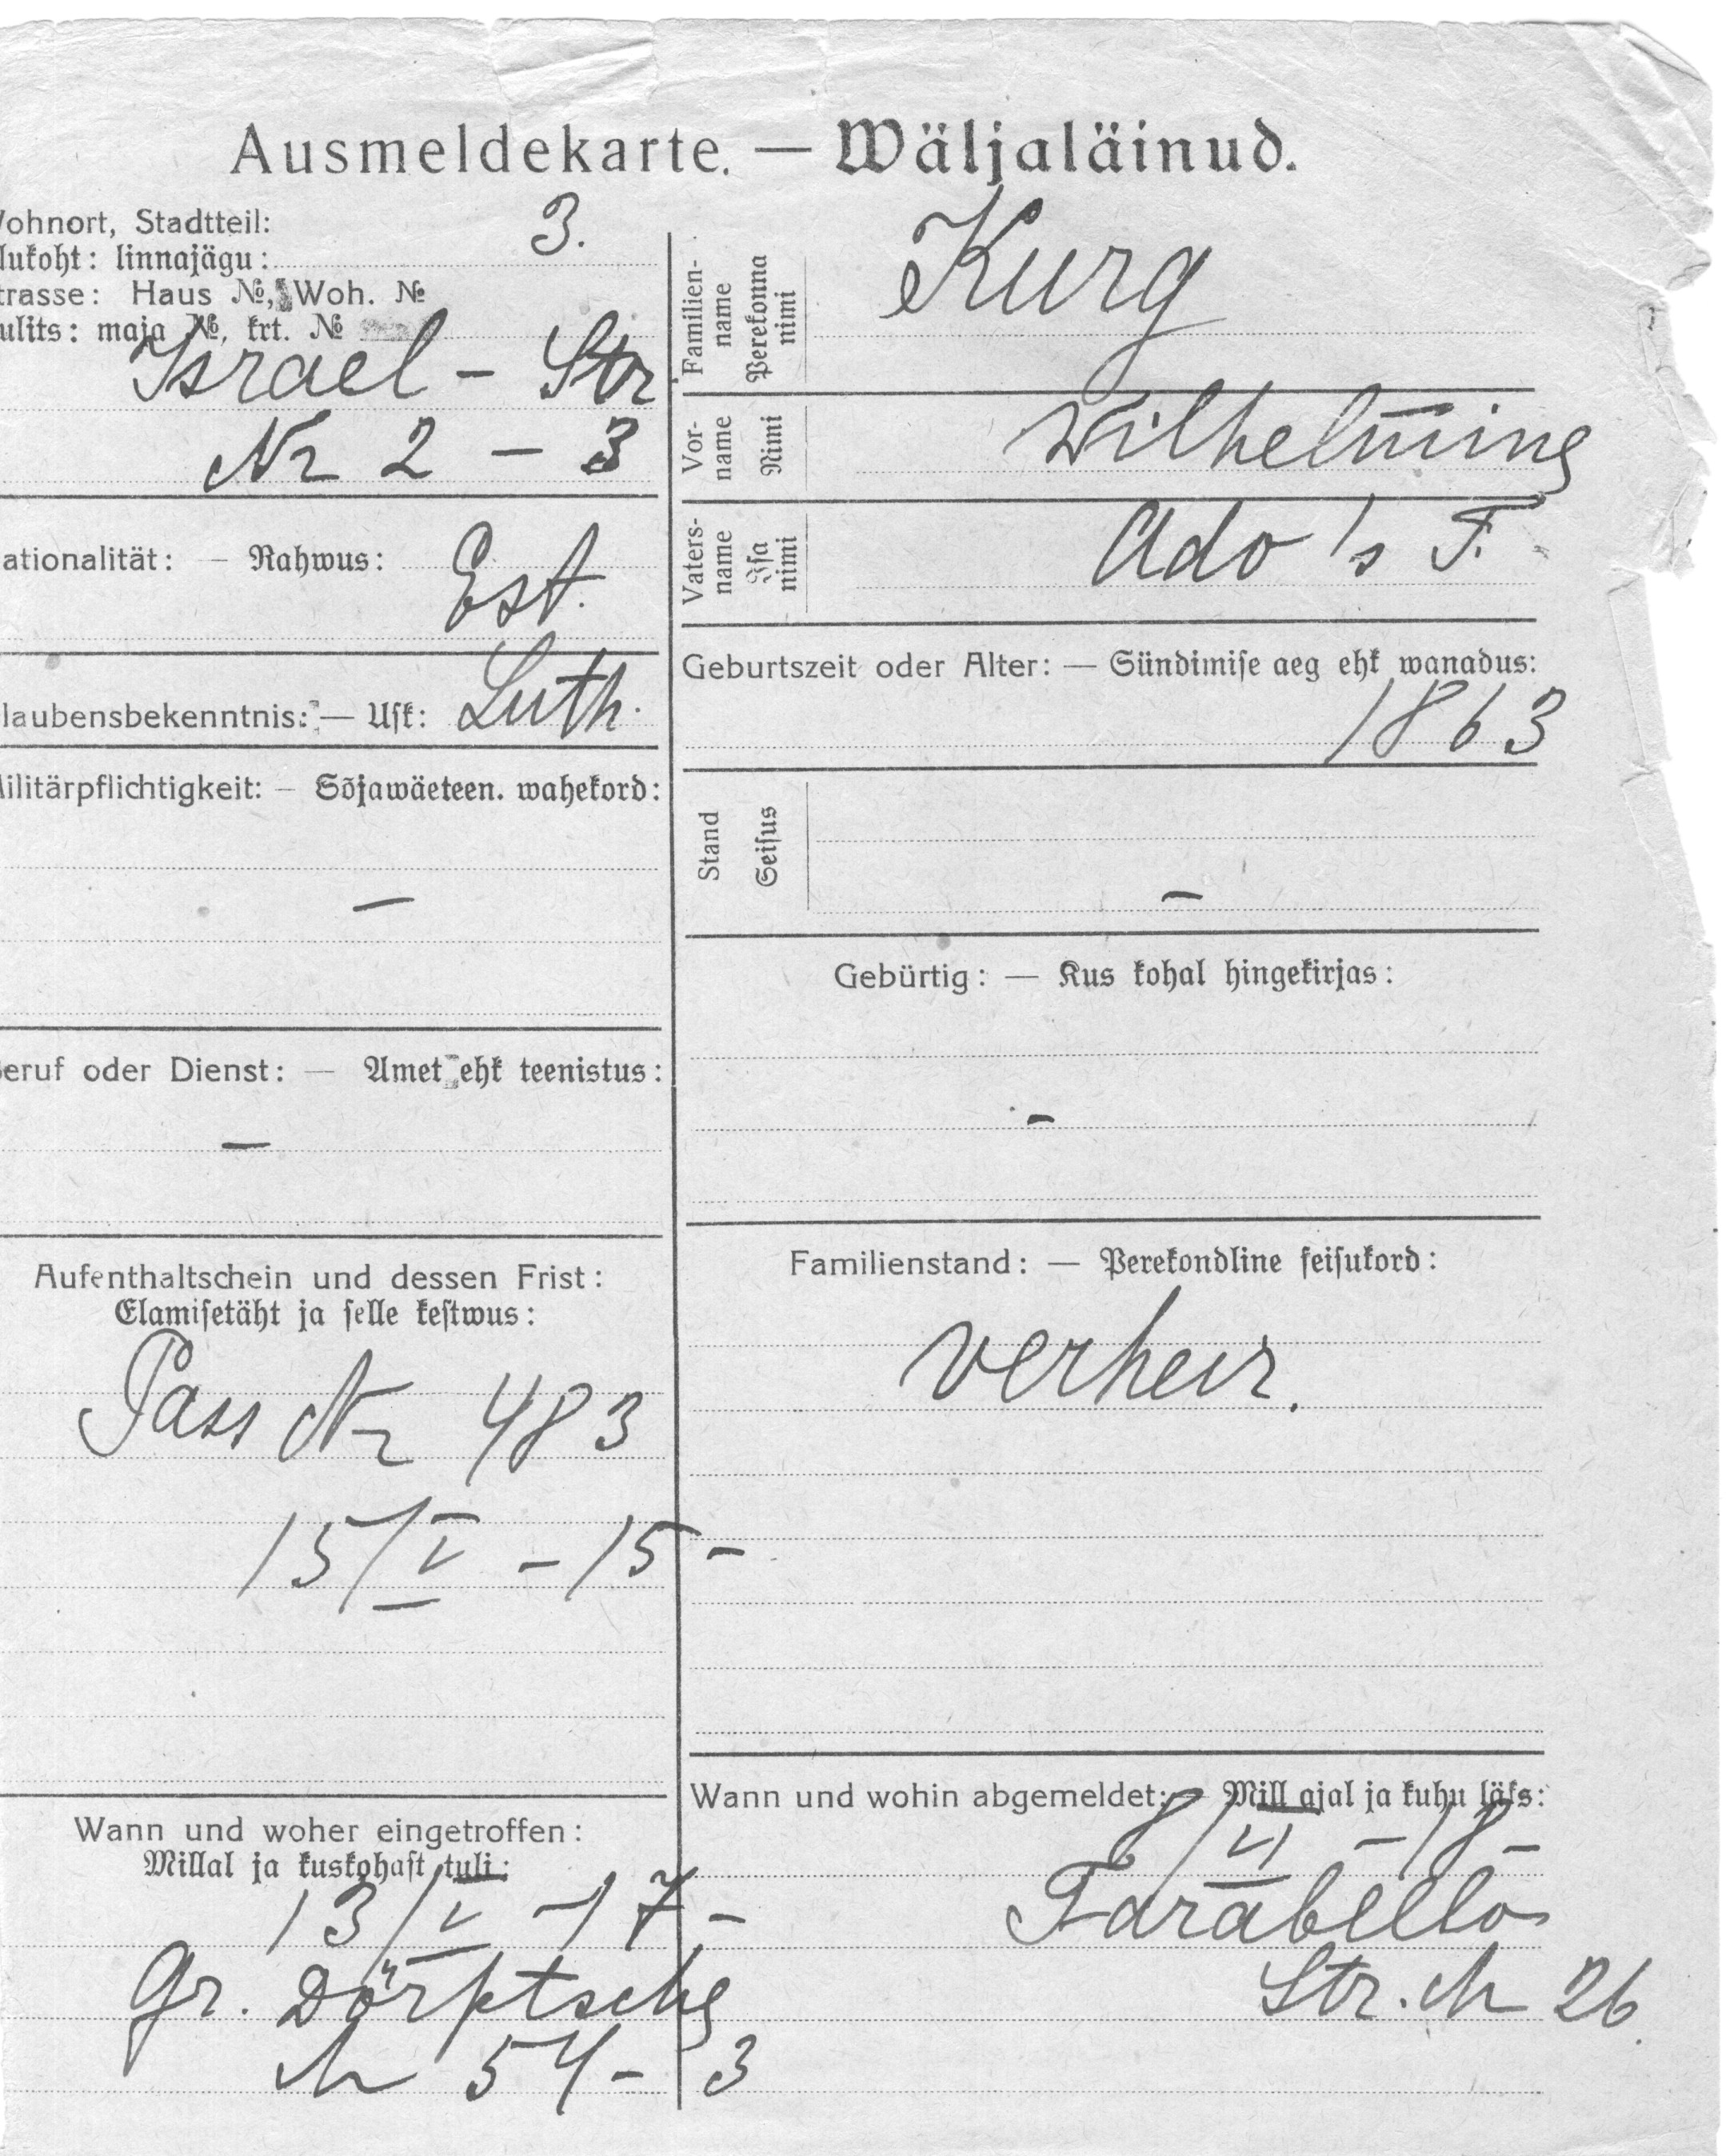 Ausmeldekarte. — Wäljaläinud.
Wohnort, Stadtteil: 3.
lukoht: linnajägu:
trasse: Haus №, Woh. №
ulits: maja №, krt. №
Israel - Str
Nr 2 - 3
ationalität: — Rahwus: Est.
laubensbekenntnis: — Usk: Luth.
ilitärpflichtigkeit: — Sõjawäeteen. wahekord:
—
eruf oder Dienst: — Amet ehk teenistus:
—
Aufenthaltschein und dessen Frist:
Elamisetäht ja selle kestwus:
Pass Nr 483
15/V - 15 -
Wann und woher eingetroffen:
Millal ja kuskohast tuli:
13/V - 17 -
Gr. Dörptsche
N 54 - 3
Familien-
name
Perekonna
nimi
Kurg
Vor-
name
Nimi
Wilhelmine
Vaters-
name
Isa
nimi
Ado's F.
Geburtszeit oder Alter: — Sündimise aeg ehk wanadus:
1863
Stand
Seisus
—
Gebürtig: — Kus kohal hingekirjas:
—
Familienstand: — Perekondline seisukord:
verheir.
Wann und wohin abgemeldet: — Mill ajal ja kuhu läks:
8/VI - 18 -
Farabello
Str. N 26.